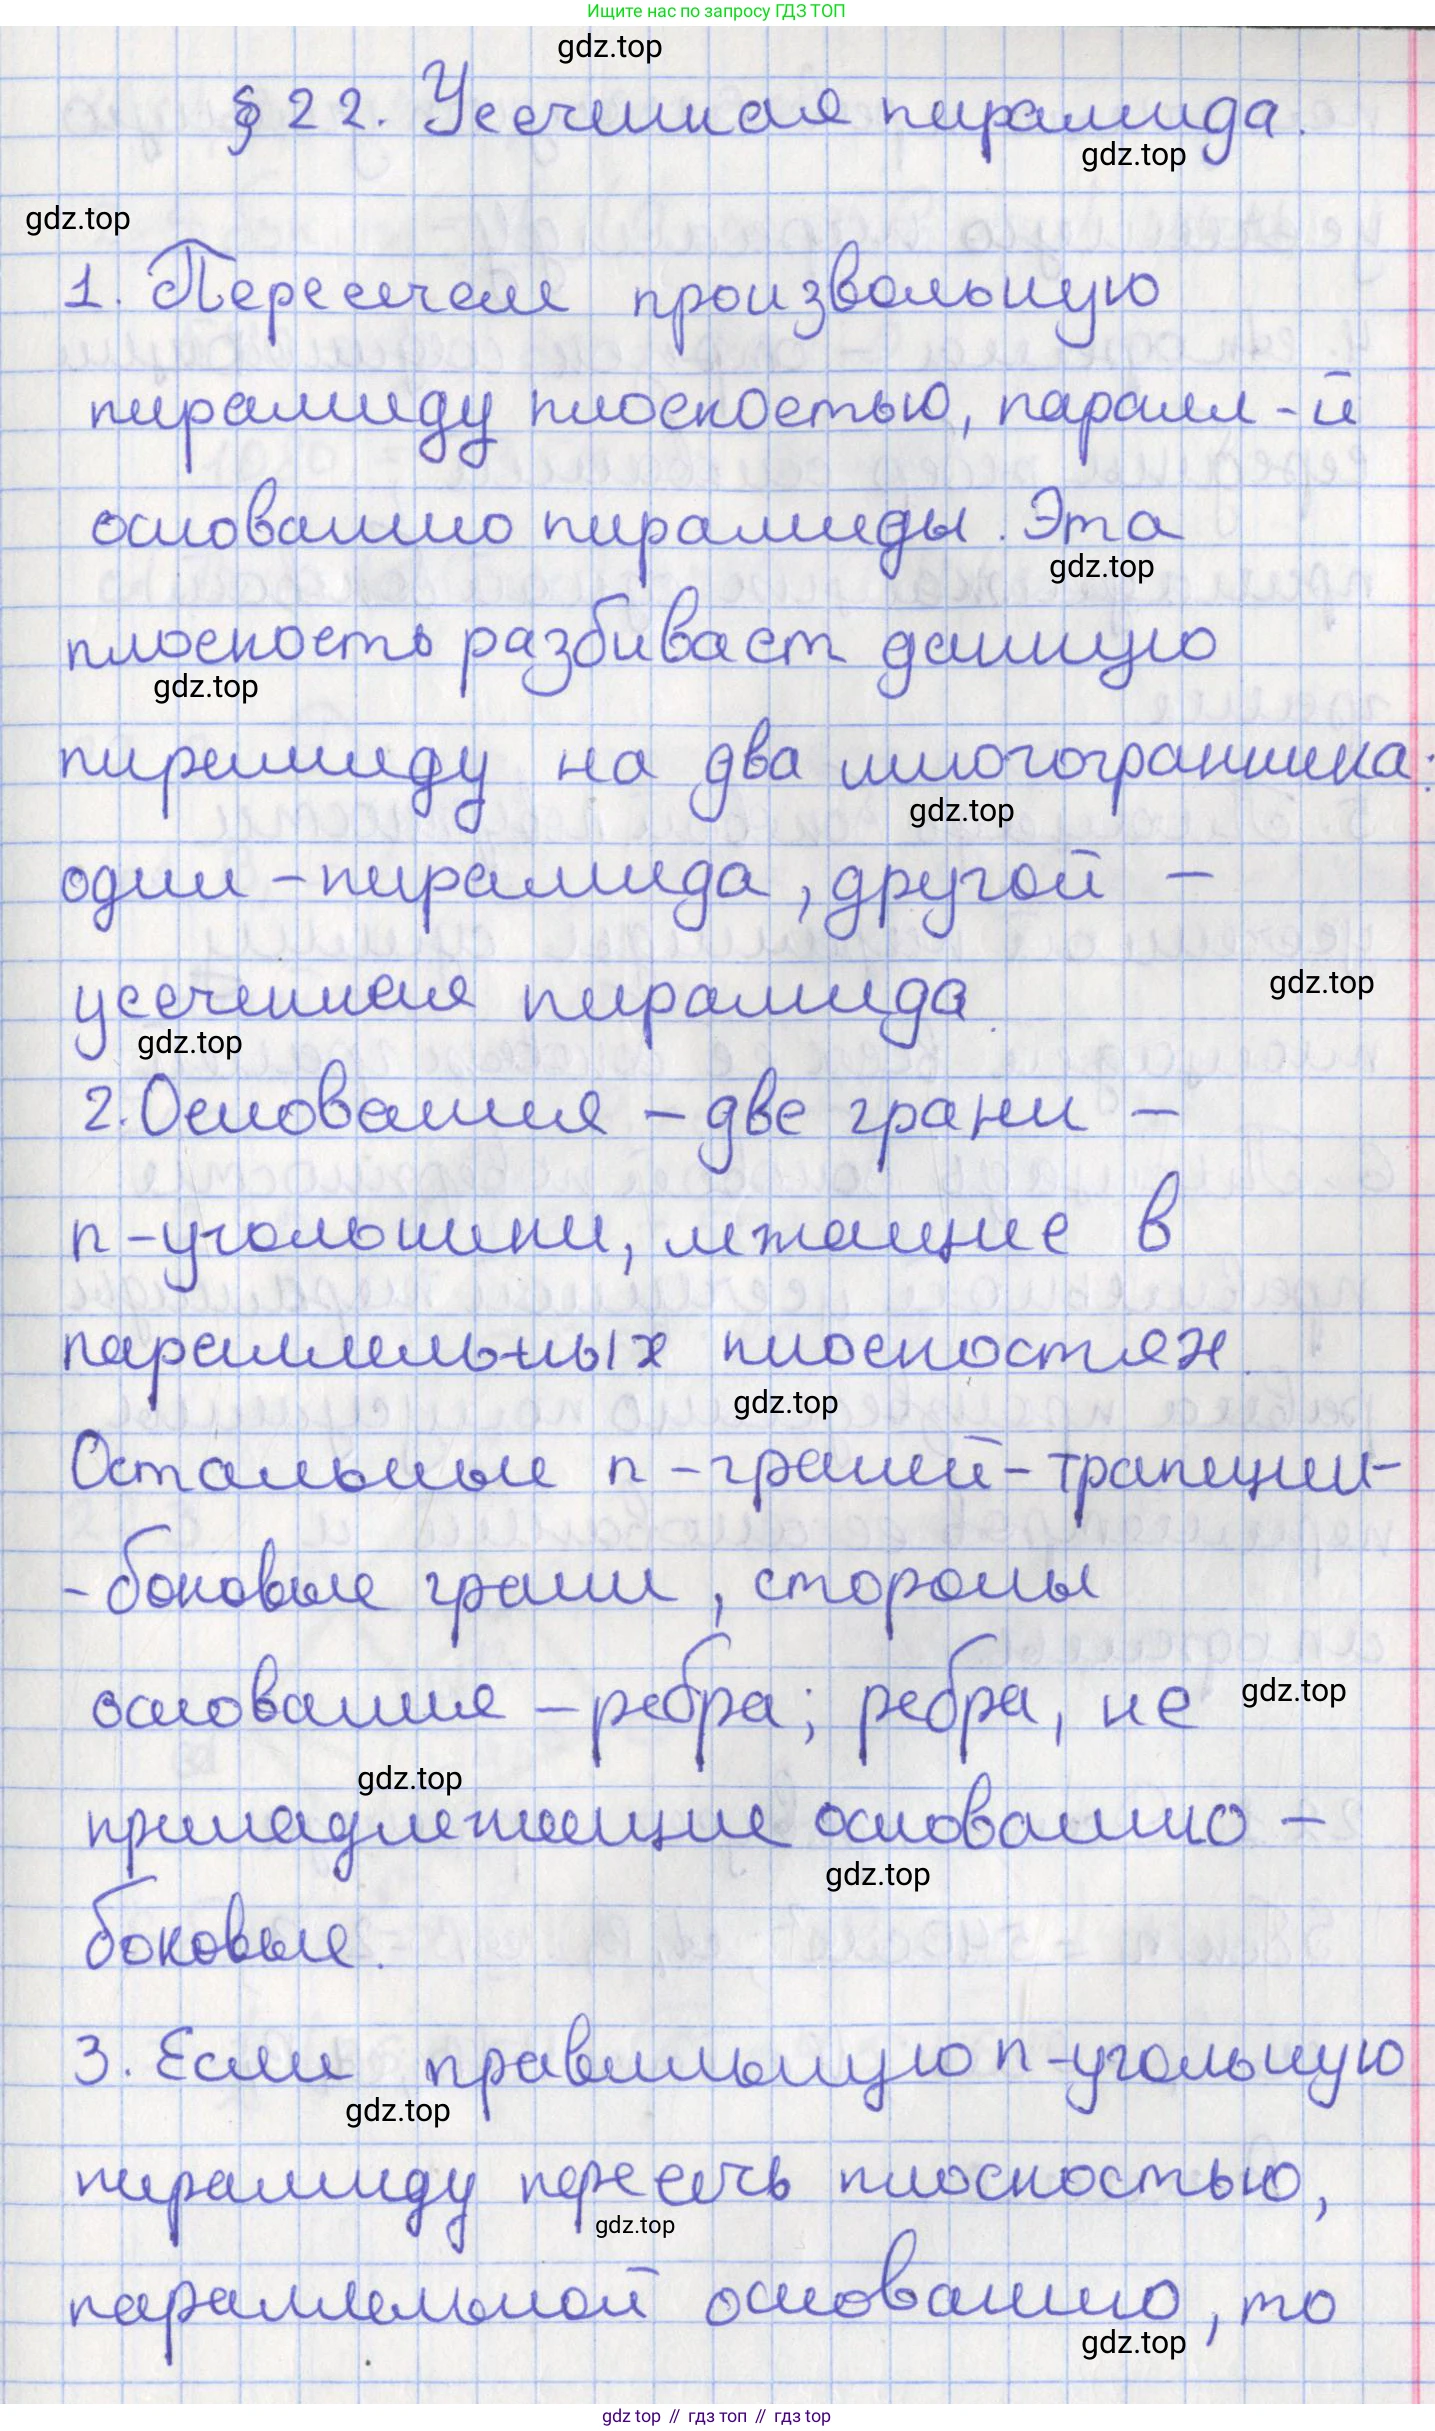 Ищите нас по запросу ГДЗ ТОП
gdz.top
§ 22. Усеченная пирамида.
gdz.top
gdz.top
1. Пересечем произвольную
пирамиду плоскостью, паралл-й
основанию пирамиды. Эта
gdz.top
плоскость разбивает данную
gdz.top
пирамиду на два многогранника:
gdz.top
один - пирамида, другой -
усеченная пирамида.
gdz.top
gdz.top
2. Основания - две грани -
n-угольники, лежащие в
параллельных плоскостях.
gdz.top
Остальные n-граней - трапеции-
- боковые грани, стороны
основания - ребра; ребра, не
gdz.top
gdz.top
принадлежащие основанию -
gdz.top
боковые.
3. Если правильную n-угольную
gdz.top
пирамиду пересечь плоскостью,
gdz.top
параллельной основанию, то
gdz.top
gdz top // гдз топ // гдз top